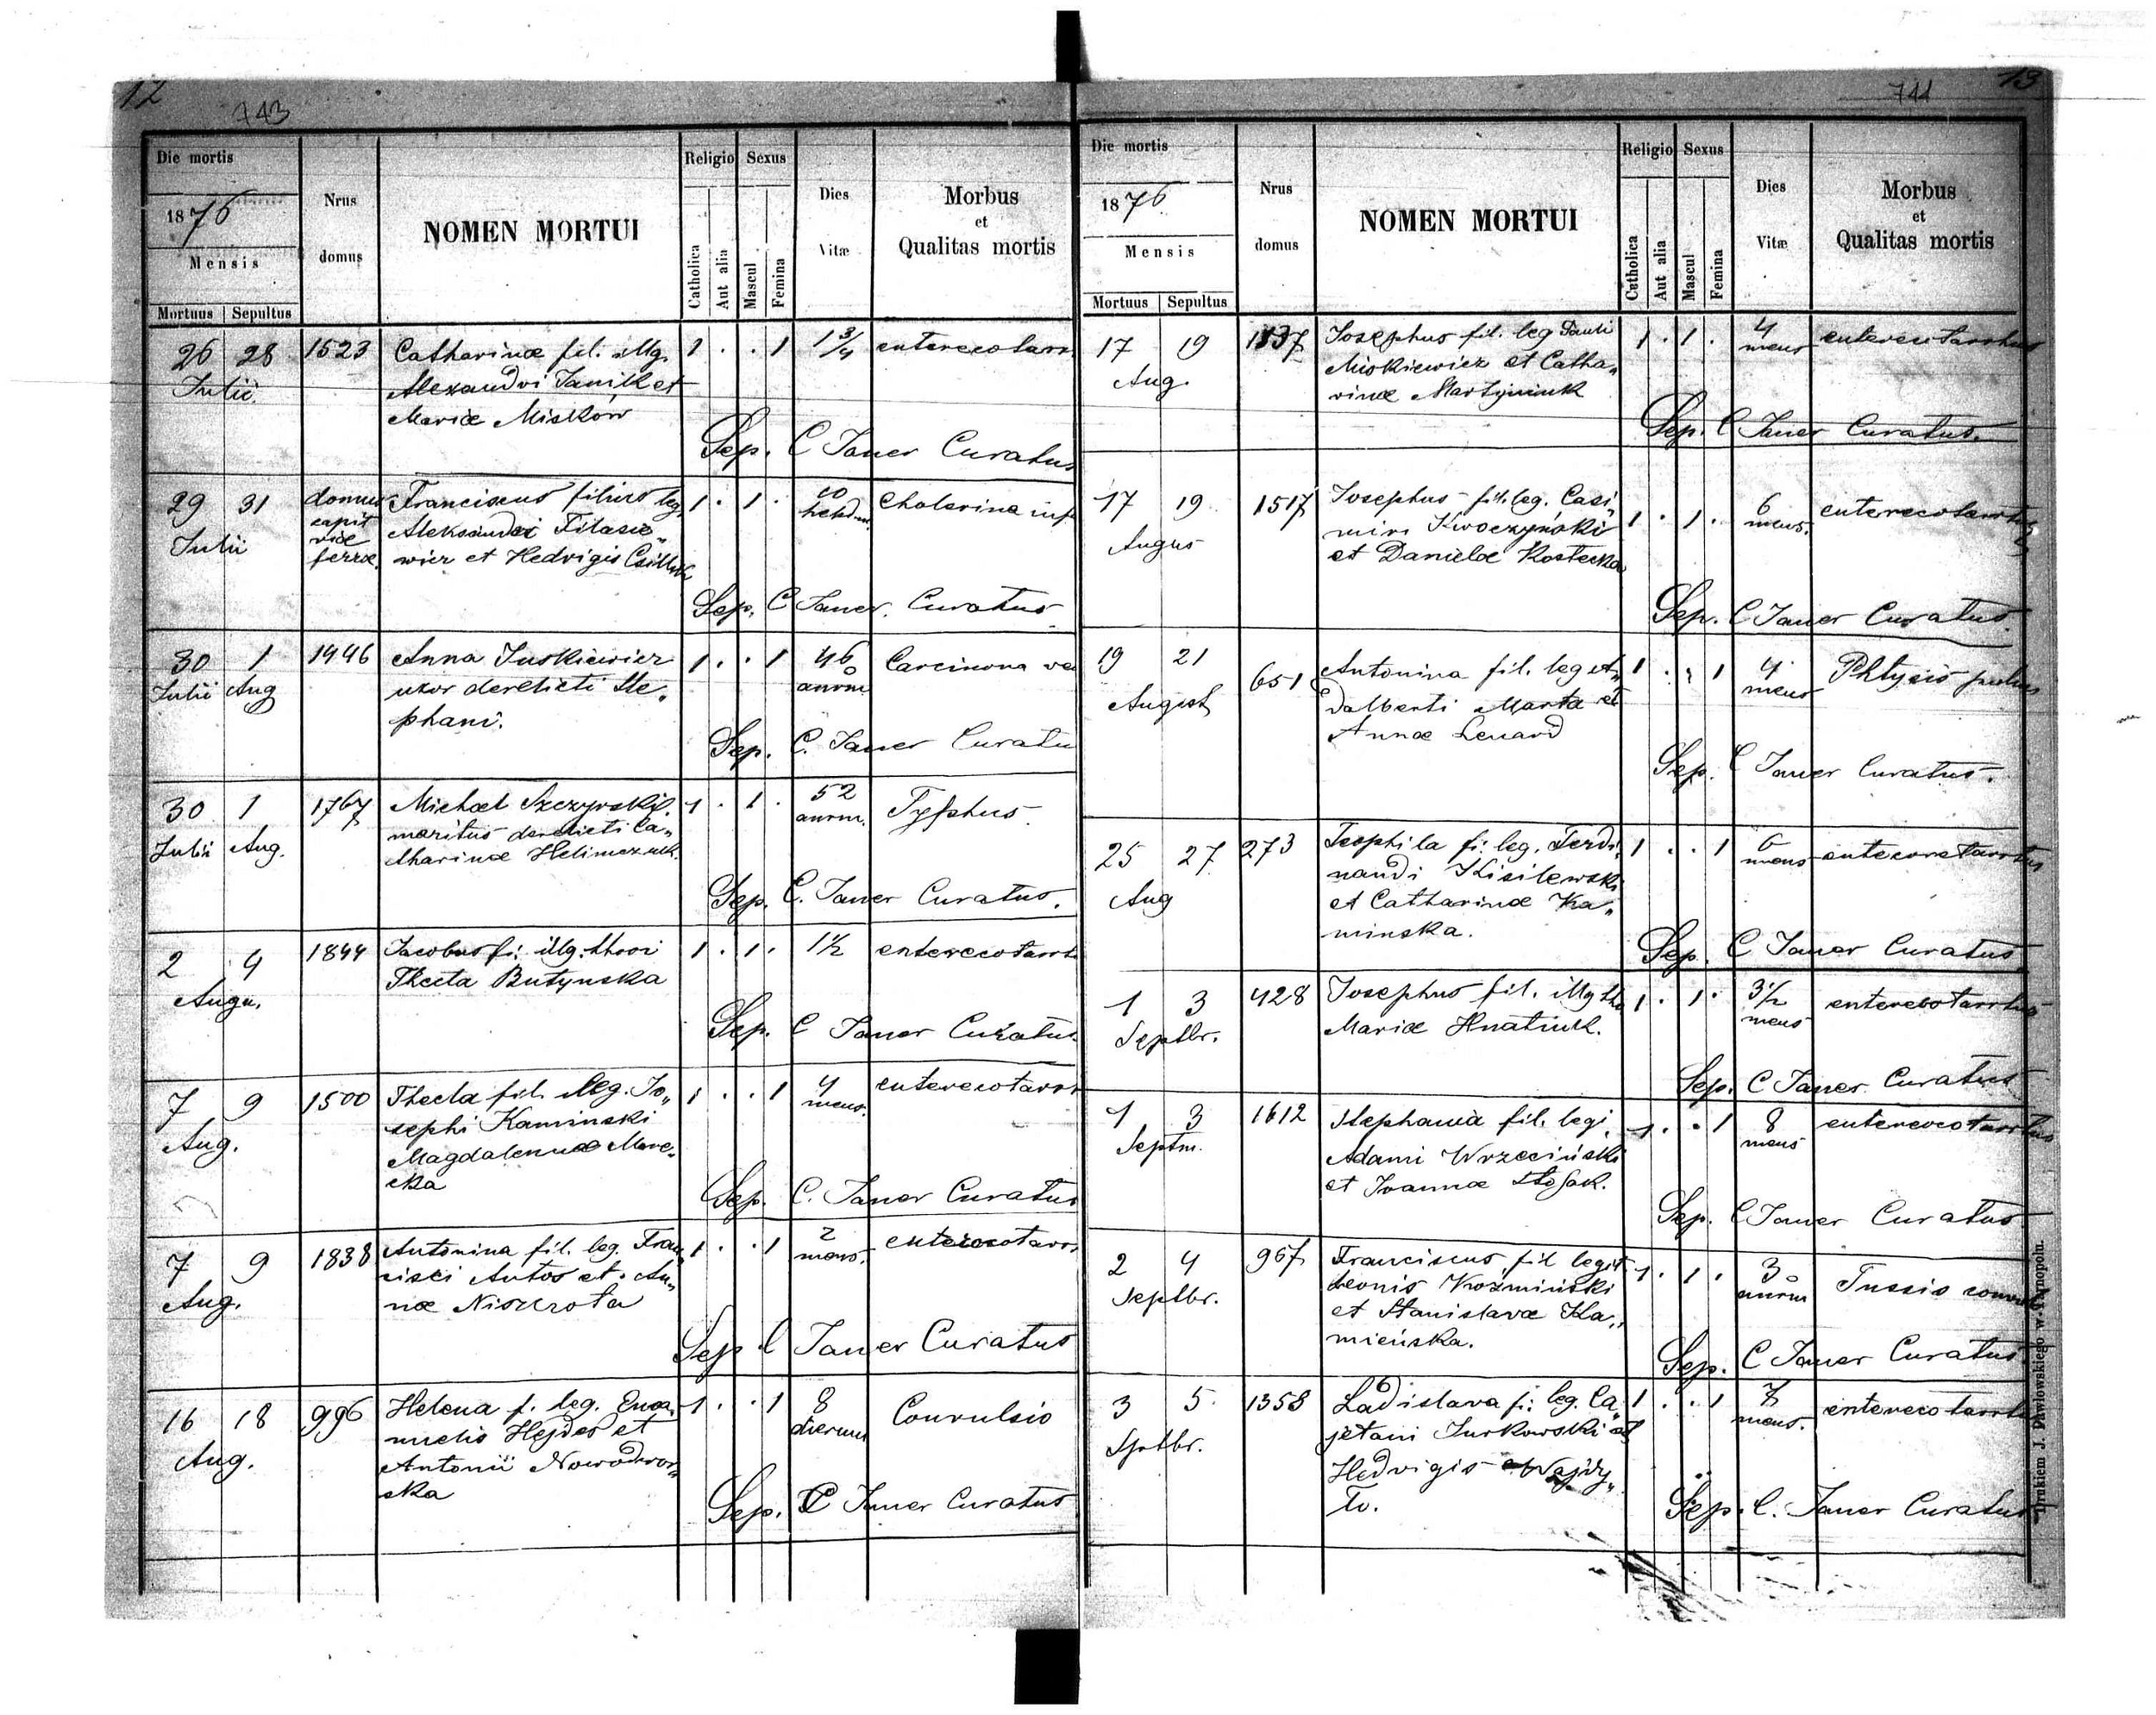 12
743
Die mortis
1876
Mensis
Mortuus Sepultus
Nrus
domus
NOMEN MORTUI
Religio Sexus
Catholica
Aut alia
Mascul
Femina
Dies
Vitæ
Morbus
et
Qualitas mortis
26 28 1523 Catharinæ fil. illg. 1 . . 1 1 3/4
Julii Alexandri Janik et
Mariæ Misków
Sep. C Janer Curatus
29 31 domus Franciscus filius leg. 1 . 1 . 10 Cholerina
Julii Aleksandri
viæ
ferræ. wicz et Hedvigis
Sep. C Janer. Curatus
30 1 1446 Anna Juskiewicz 1 . . 1 46 Carcinoma
Julii Aug uxor derelicti Ste„ annor
phani.
Sep. C. Janer Curatu
30 1 1767 Michael 1 . 1 . 52 Typhus.
Julii Aug. maritus derelicti Ca„ annor.
tharinæ
Sep. C. Janer Curatus.
2 4 1844 Jacobus fi. illg. thori 1 . 1 . 1 1/2
Augu. Theclа Butynska
Sep. C Janer Curatus
7 9 1500 Thecla fil. illeg. Jo„ 1 . . 1 4
Aug. sephi Kaminski mens.
Magdalennæ
cka
Sep. C. Janer Curatus
7 9 1838 Antonina fil. leg. Fran„ 1 . . 1 2
Aug. cisci Antos et An„ mens.
næ Niszczota
Sep C Janer Curatus
16 18 996 Helena f. leg. Ema„ 1 . . 1 8 Convulsio
Aug. nuelis Hejdes et dierum
Antonii Nowodwor„
ska
Sep. C Janer Curatus
744
13
Die mortis
1876
Mensis
Mortuus Sepultus
Nrus
domus
NOMEN MORTUI
Religio Sexus
Catholica
Aut alia
Mascul
Femina
Dies
Vitæ
Morbus
et
Qualitas mortis
17 19 1137 Josephus fil. leg Pauli 1 . 1 . 4
Aug. Miskiewicz et Catha„ mens
rinæ Martyniuk
Sep. C Janer Curatus.
17 19 1517 Josephus fil. leg. Casi„ 1 . 1 . 6
Augus miri Kwoczyński mens.
et Danielæ Kostecka
Sep. C Janer Curatus.
19 21 651 Antonina fil. leg A„ 1 . . 1 4 Phtysis
August dalberti Marta et mens
Annæ Lenard
Sep. C Janer Curatus.
25 27 273 Teophila fi: leg. Ferdi„ 1 . . 1 6
Aug nandi Kisilewski mens
et Catharinæ Ka„
minska.
Sep. C Janer Curatus
1 3 428 Josephus fil. illg tho 1 . 1 . 3 1/2
Septbr. Mariæ Hnatiuk. mens
Sep. C Janer Curatus
1 3 1612 Stephania fil. legi. 1 . . 1 8
Septm. Adami Wrzeciński mens
et Joannæ
Sep. C Janer Curatus
2 4 967 Franciscus fil legit. 1 . 1 . 3 Tussis
Septbr. Leonis Kroźmiński annor
et Stanislavæ Ka„
mieńska.
Sep. C Janer Curatus
3 5 1358 Ladislava fi: leg. Ca„ 1 . . 1 7
Sptbr. jetani Jurkowski et mens.
Hedvigis
Sep. C. Janer Curatus
Drukiem J. Pawłowskiego w Tarnopolu.